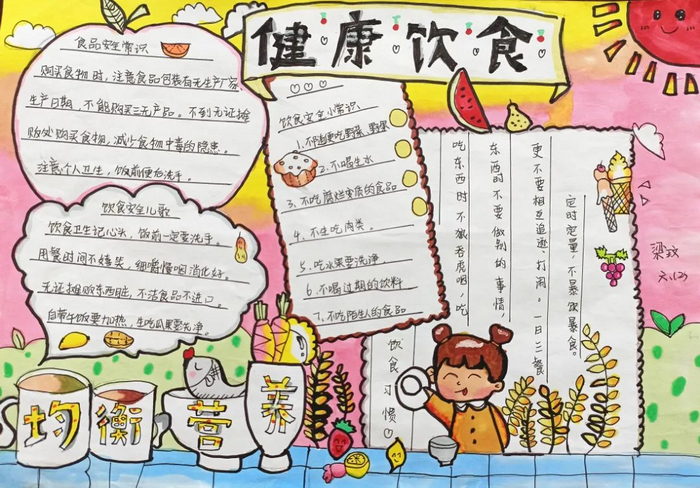 健康饮食
食品安全常识
购买食物时,注意食品包装有无生产厂家、
生产日期,不能购买三无产品。不到无证摊
贩处购买食物,减少食物中毒的隐患。
注意个人卫生,饭前便后洗手。
饮食安全小常识
1、不随意吃野菜、野果
2、不喝生水
3、不吃腐烂变质的食品
4、不生吃肉类。
5、吃水果要洗净
6、不喝过期的饮料
7、不吃陌生人的食品
饮食安全儿歌
饮食卫生记心头,饭前一定要洗手。
用餐时间不嬉笑,细嚼慢咽消化好。
无证摊贩东西脏,不洁食品不进口。
自带午饭要加热,生吃瓜果要洗净。
饮食习惯
定时定量,不暴饮暴食。
更不要相互追逐、打闹。一日三餐
东西时不要做别的事情,
吃东西时不狼吞虎咽,吃
梁玟
六(2)
均衡营养